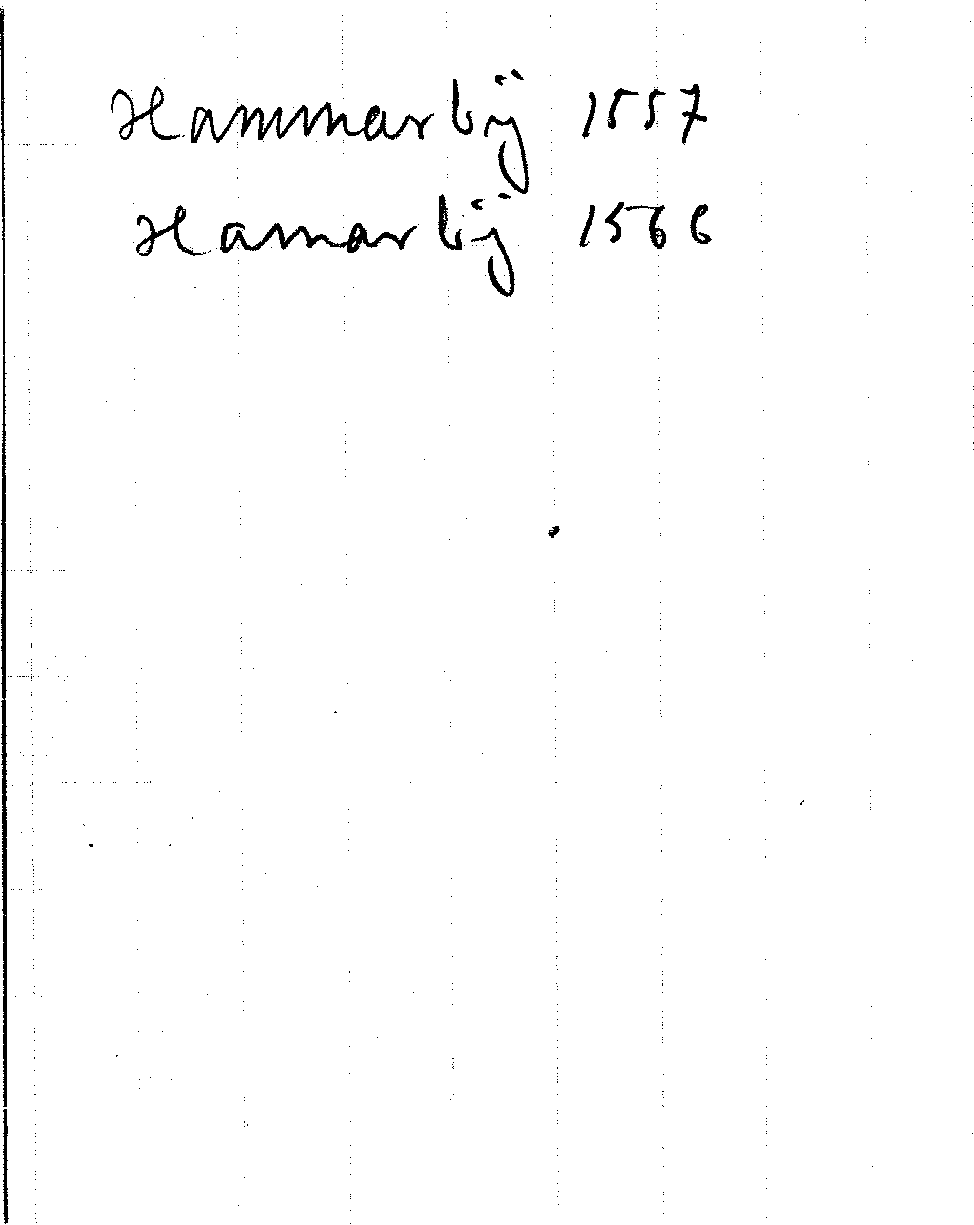 Hammarbÿ 1557
Hamarbÿ 1566